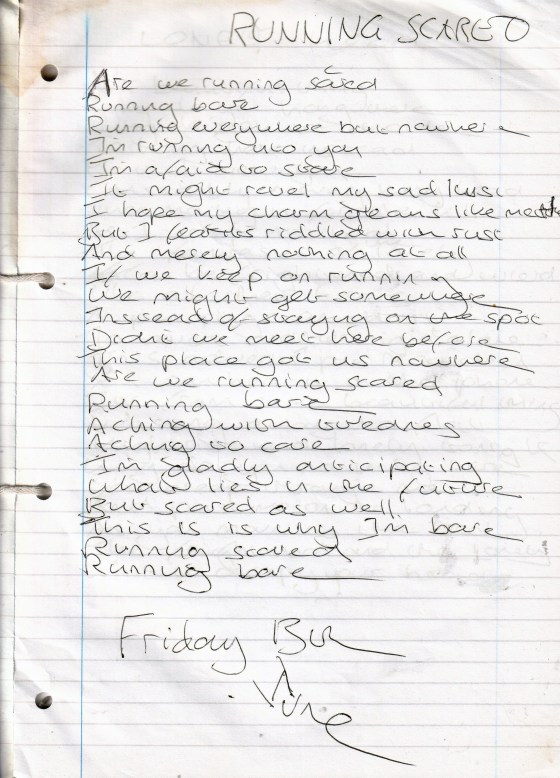 RUNNING SCARED
Are we running scared
Running bare
Running everywhere but nowhere
Im running into you
Im afraid to stare
It might revel my sad lust
I hope my charm gleans like
But I fear its riddled with rust
And merely nothing at all
If we keep on running
We might get somewhere
Instead of staying on the spot
Didnt we meet here before
This place got us nowhere
Are we running scared
Running bare
Aching with
Aching to care
Im gladly anticipating
What lies in the future
But scared as well
This is is why Im bare
Running scared
Running bare
Friday
June